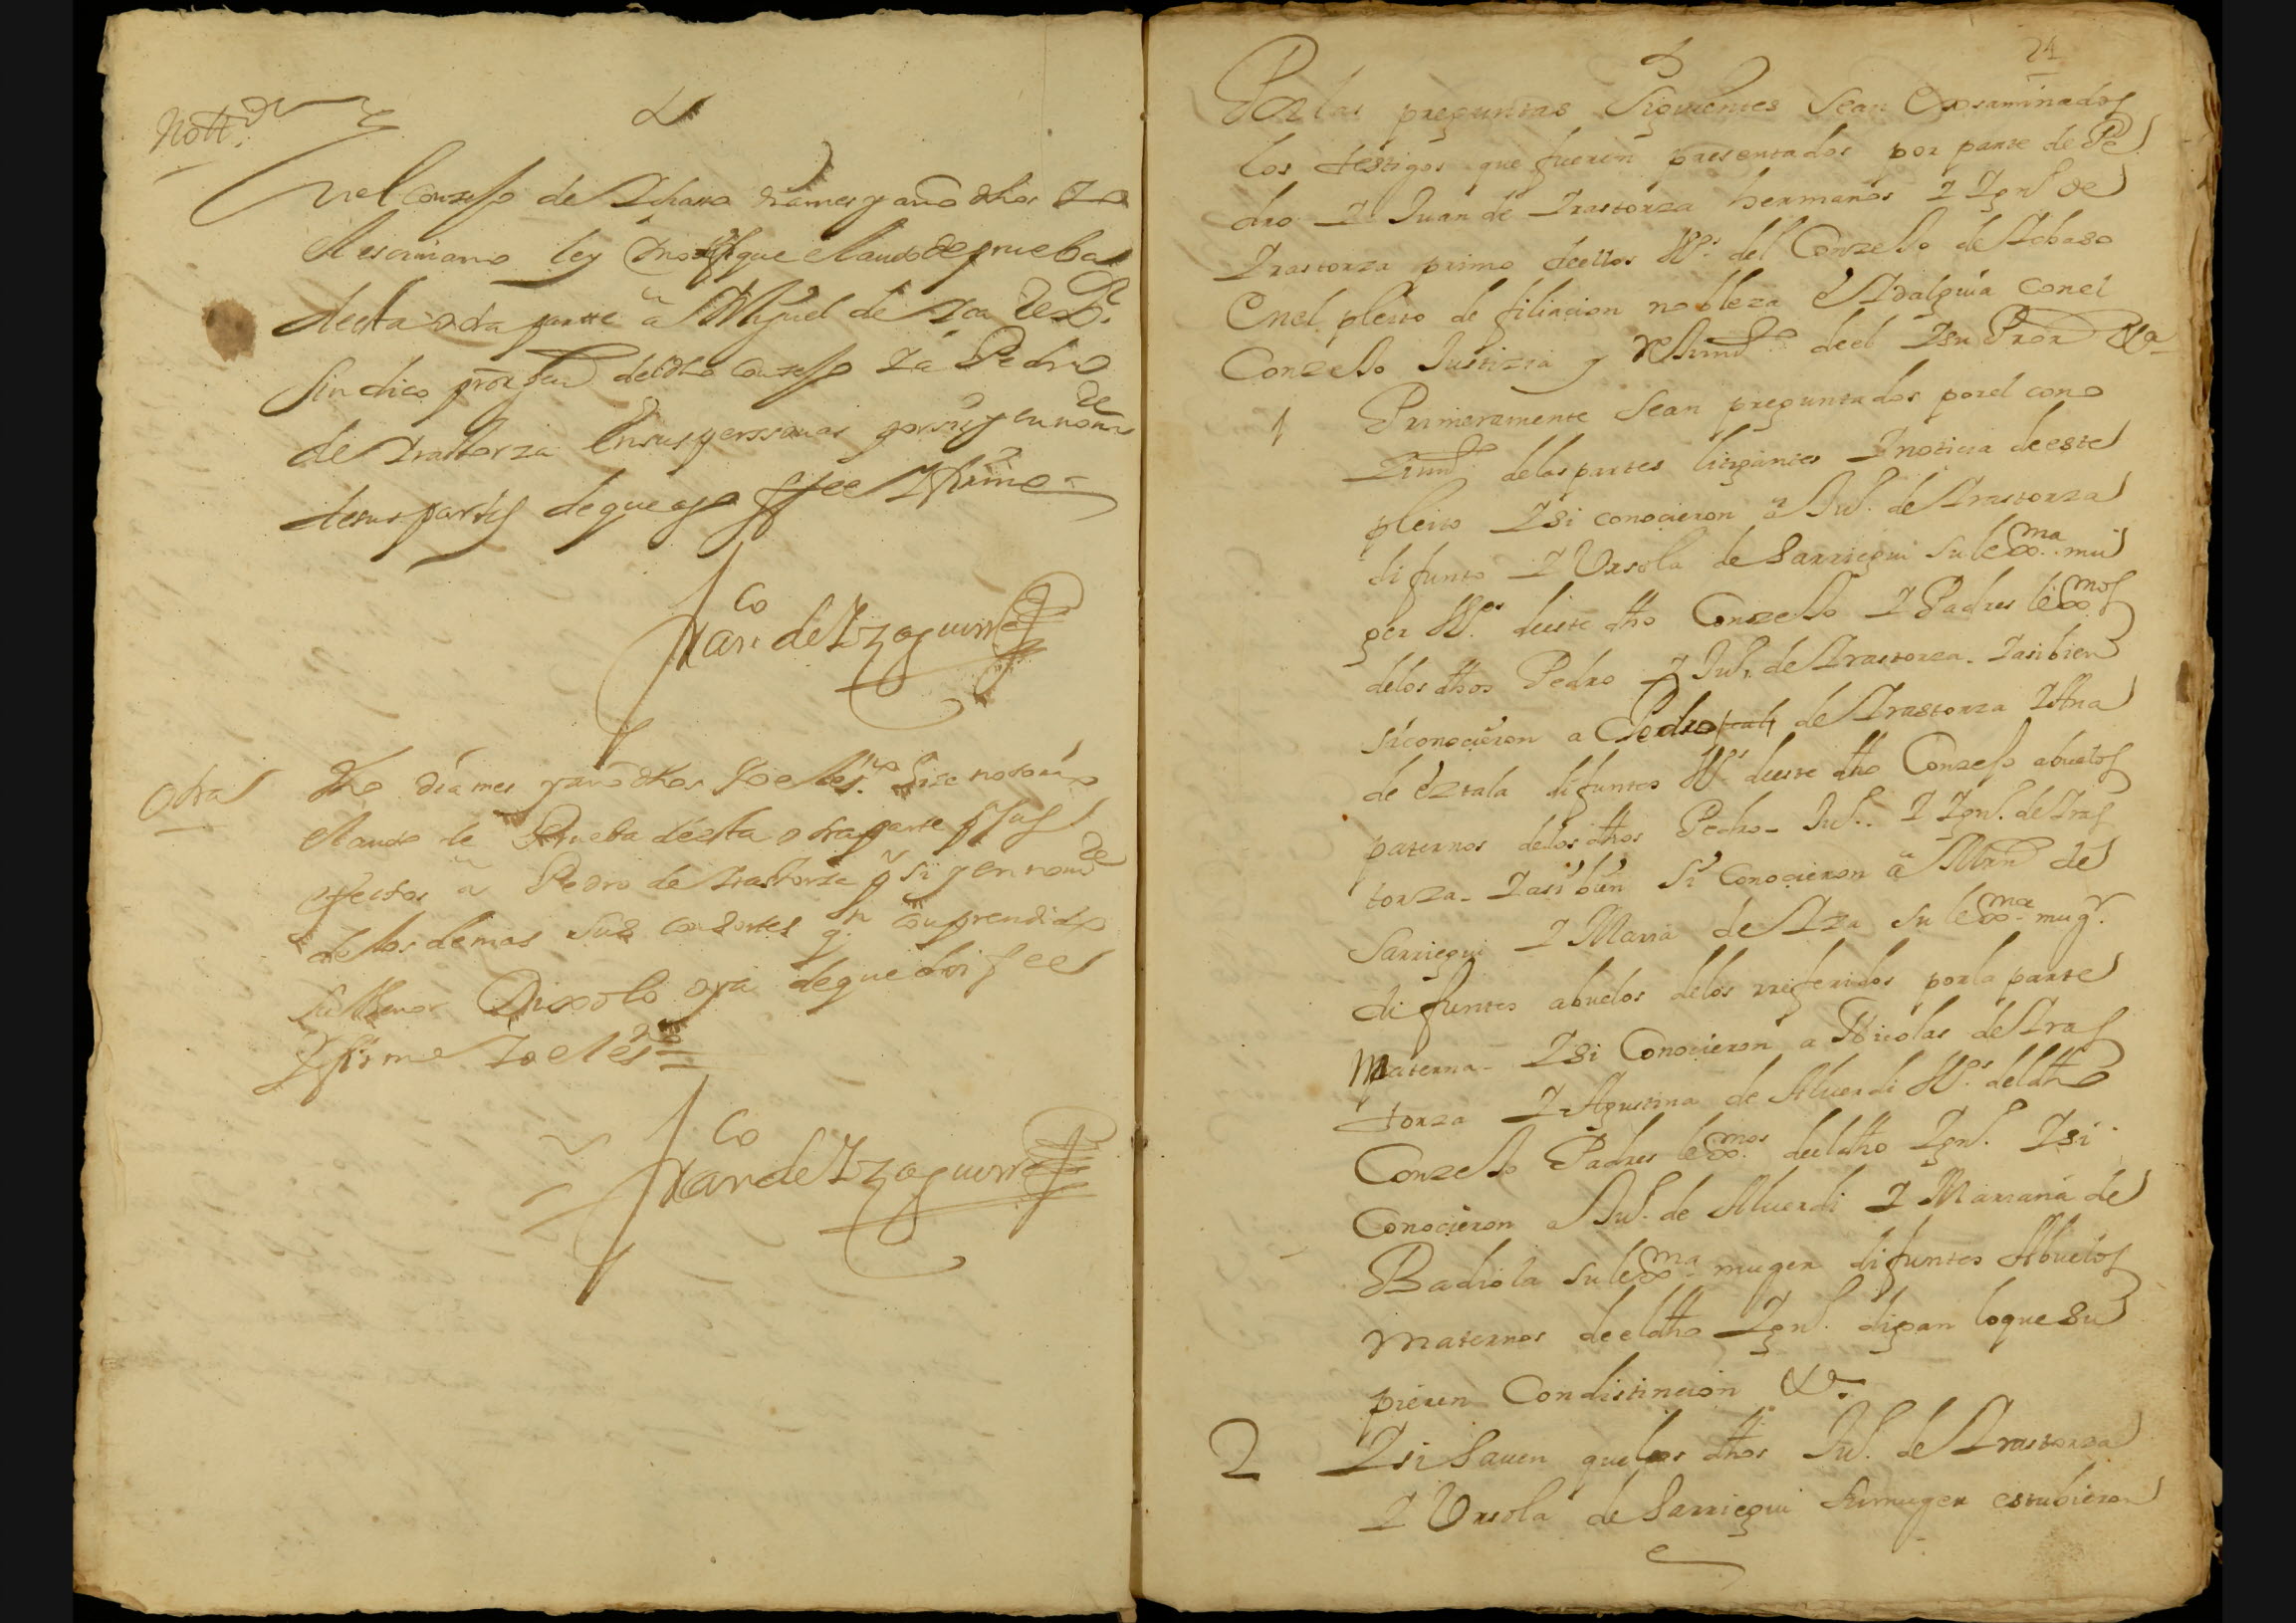 Nott.on
En el conzejo de Ichaso dia mes y año dhos Yo
el escrivano ley e notifique el auto de prueba
de esta otra parte a Miguel de
Sindico prör Gen del dho conzejo Ya Pedro
de Irastorza en sus perssonas por si y en nomre
de sus partes de que doy ffee Y firme =
Franco de Yzaguirre
Otra
dho dia mes y año dhos Yo el ess.no hize notorio
el auto de Prueba de esta otra parte
efectos a Pedro de Irastorza p si y en nomre
de los demas sus consortes q.n comprendido
su thenor Dixo lo oya de que doi fee
Y firme Yo el ess.no =
Franco de Yzaguirre
24
Por las preguntas siguientes sean exsaminados
los testigos que fueren presentados por parte de Pe
dro Y Juan de Irastorza hermanos Y Ign.o de
Irastorza primo de ellos Vz.os del Conzejo de Ichaso
en el pleito de filiacion nobleza e Idalguia con el
Conzejo Justizia y Rexim.to de el Y su Pror &a
1 Primeramente sean preguntados por el cono
zim.to de las partes litigantes Y noticia de este
pleito Y si conocieron a Ju.o de Irastorza
difunto Y Ursola de Sarriegui su lex.ma mu
ger Vz.os de este dho Conzejo Y Padres lex.mos
de los dhos Pedro Y Ju.o de Irastorza. Y asi bien
si conocieron a Pedro de Irastorza Y Ana
de Eztala difuntos Vz.os de este dho Conzejo abuelos
paternos de los dhos Pedro Ju.o Y Ign.o de Iras
torza. Y asi bien si conocieron a Mrn de
Sarriegui Y Maria de Aza su lex.ma mug.r
difuntos abuelos de los rreferidos por la parte
Materna. Y si Conocieron a Nicolas de Iras
torza Y Agustina de Aluerdi Vz.os del dho
Conzejo Padres lex.mos de el dho Ign.o Y si
Conocieron a Ju.o de Aluerdi Y Mariana de
Badiola su lex.ma muger difuntos Abuelos
maternos de el dho Ign.o digan lo que su
pieren Con distincion &a.
2 Y si Sauen que los dhos Ju.o de Irastorza
Y Ursola de Sarriegui su muger estubieron